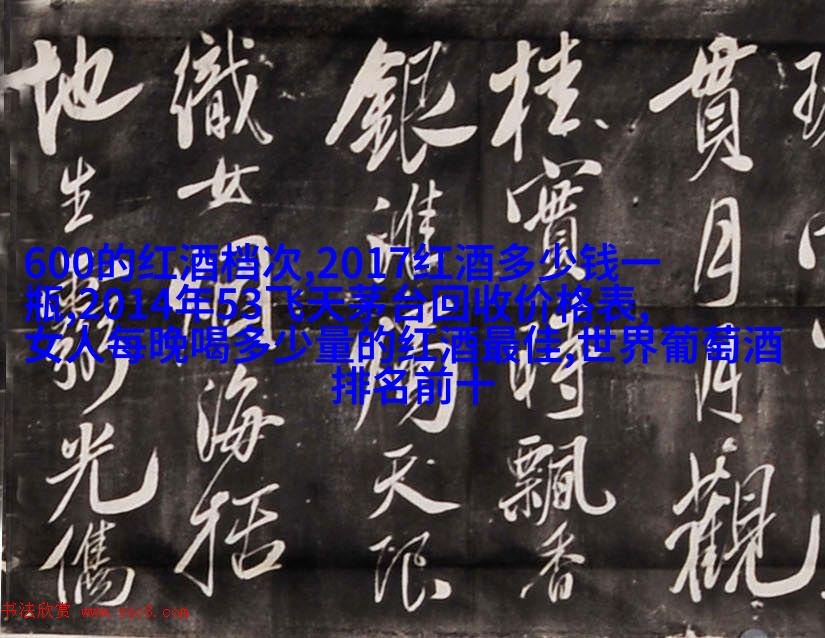 貫月
月觀
桂實
時飄香
銀
天
織女
海
地生
光
600的红酒档次,2017红酒多少钱一
瓶,2014年53飞天茅台回收价格表,
女人每晚喝多少量的红酒最佳,世界葡萄酒
排名前十
书法欣赏 www.yac8.com